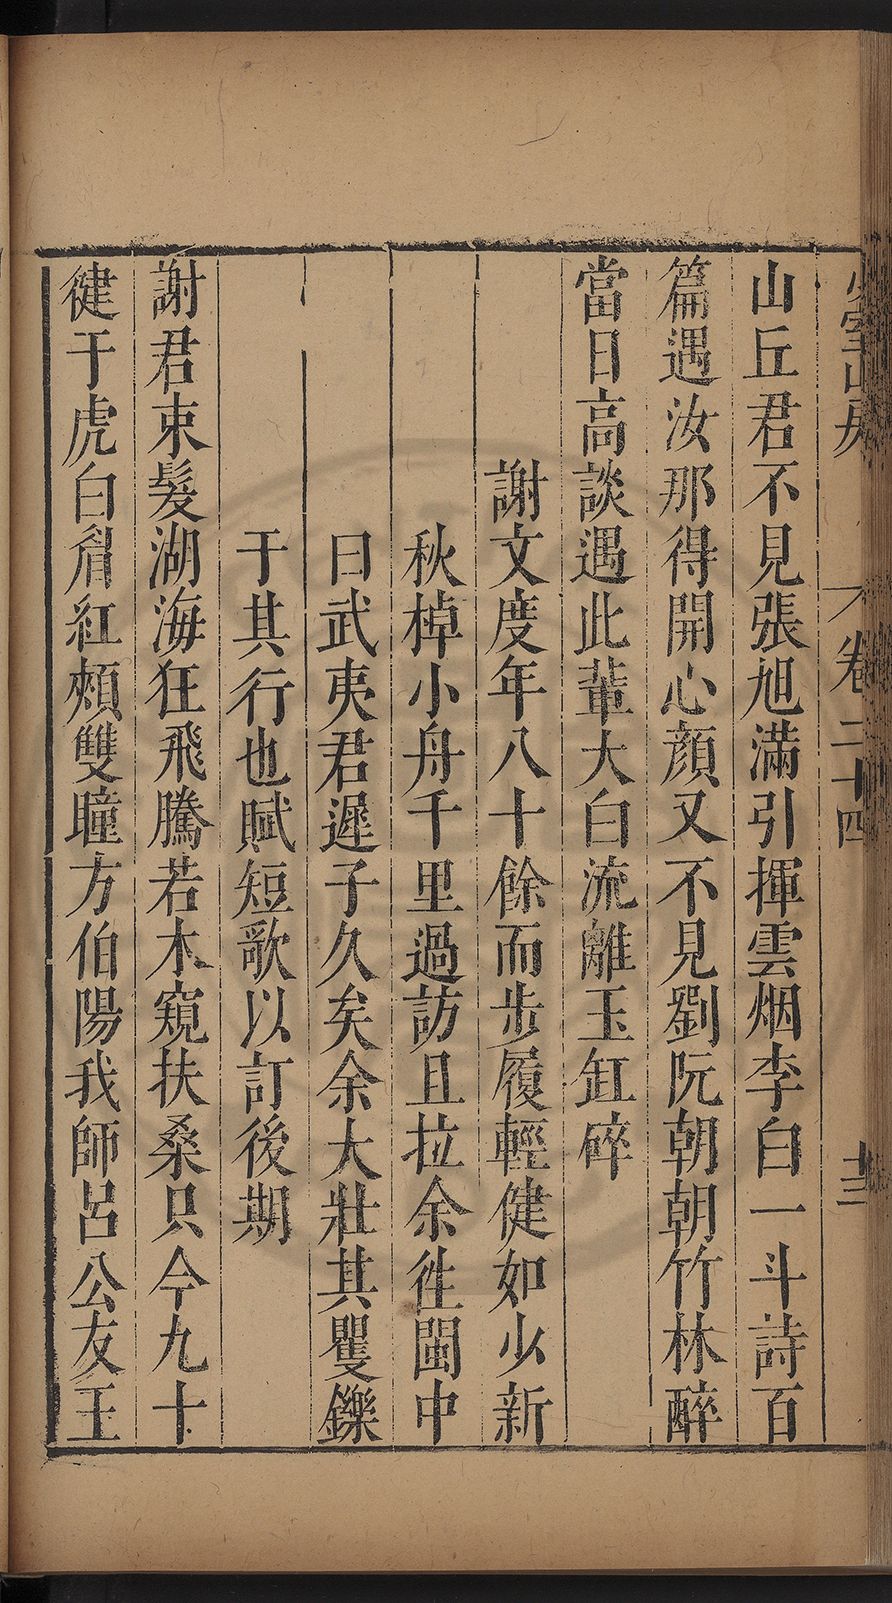 少室山房
卷二十四
十三
山丘君不見張旭滿引揮雲烟李白一斗詩百
篇遇汝那得開心顔又不見劉阮朝朝竹林醉
當日高談遇此輩大白流離玉缸碎
謝文度年八十餘而步履輕健如少新
秋棹小舟千里過訪且拉余徃閩中
曰武夷君遲子久矣余大壯其矍鑠
于其行也賦短歌以訂後期
謝君束髮湖海狂飛騰若木窺扶桑只今九十
徤于虎白眉紅頰雙瞳方伯陽我師呂公友王